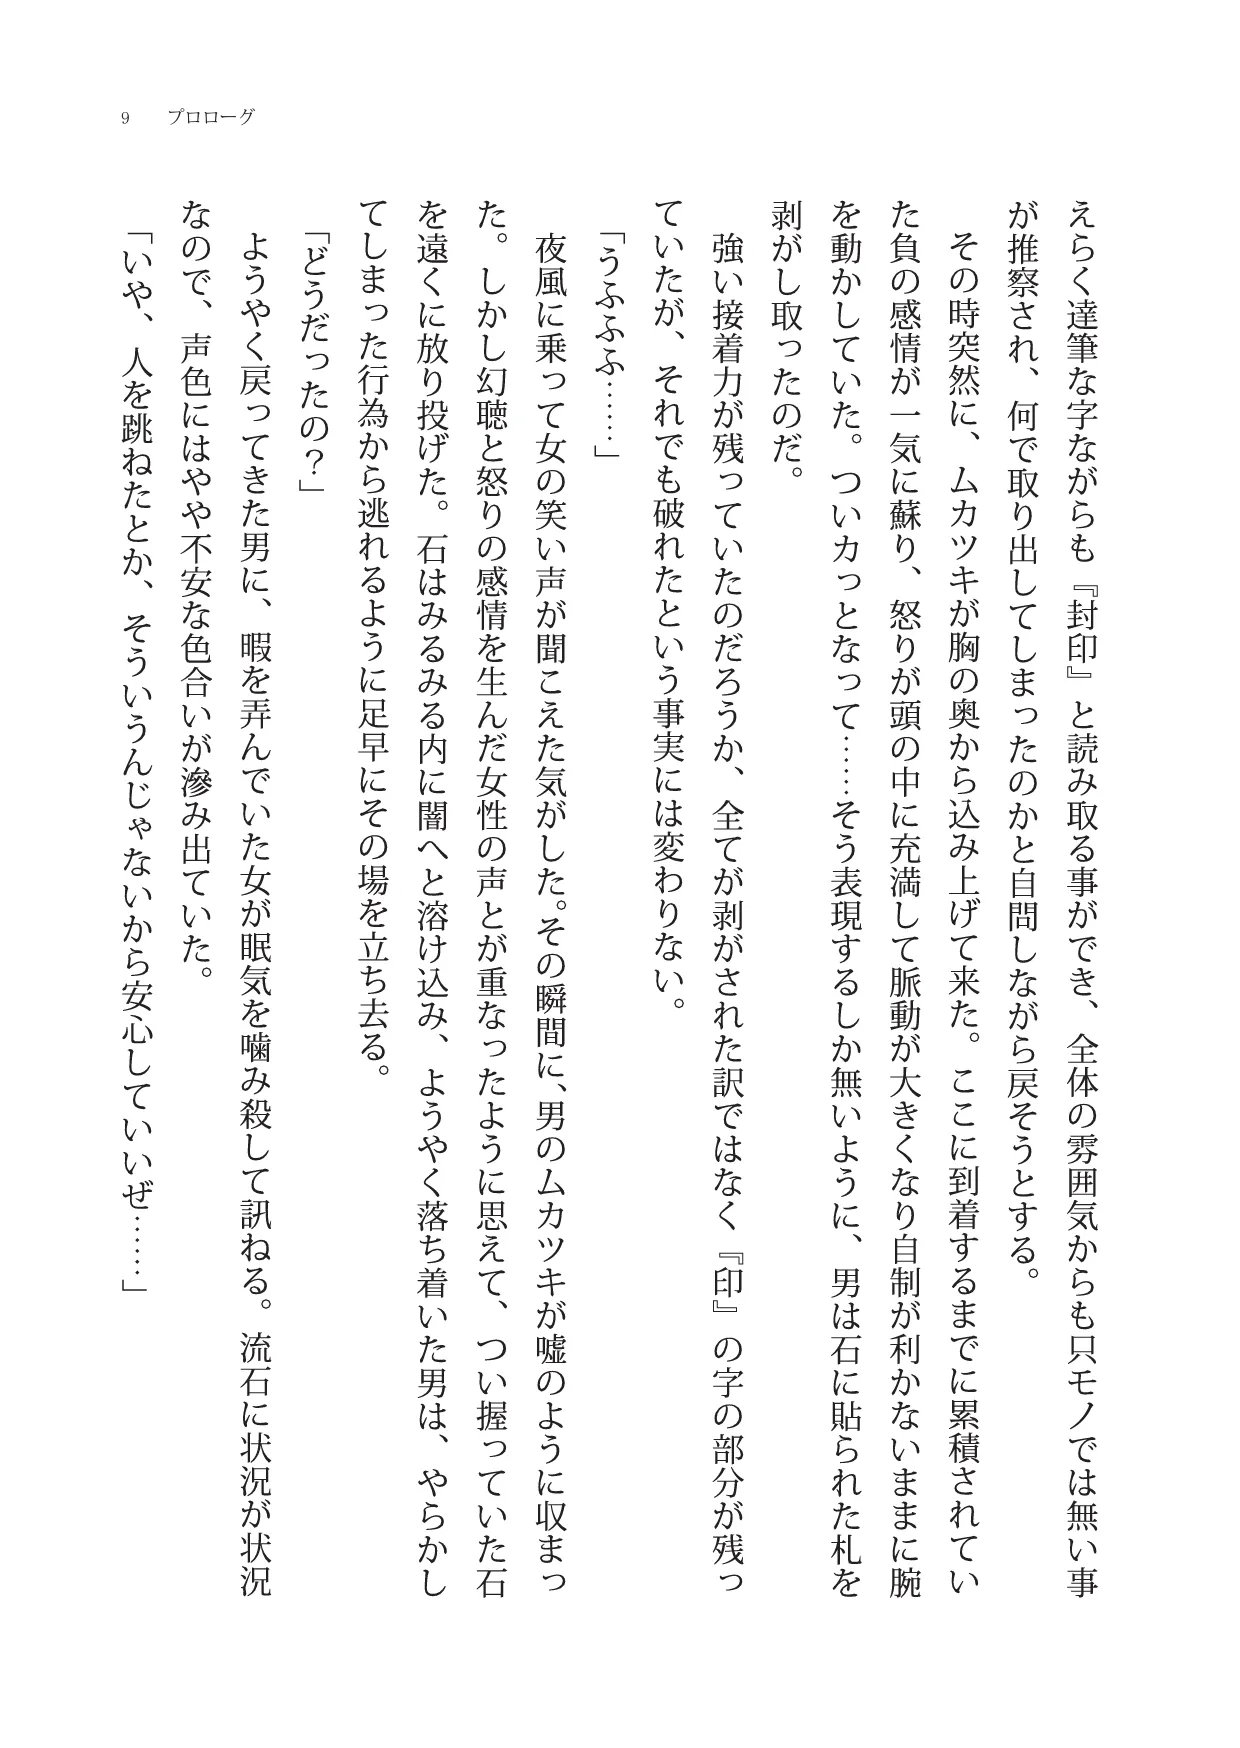 9 プロローグ
えらく達筆な字ながらも『封印』と読み取る事ができ、全体の雰囲気からも只モノでは無い事
が推察され、何で取り出してしまったのかと自問しながら戻そうとする。
その時突然に、ムカツキが胸の奥から込み上げて来た。ここに到着するまでに累積されてい
た負の感情が一気に蘇り、怒りが頭の中に充満して脈動が大きくなり自制が利かないままに腕
を動かしていた。ついカっとなって……そう表現するしか無いように、男は石に貼られた札を
剥がし取ったのだ。
強い接着力が残っていたのだろうか、全てが剥がされた訳ではなく『印』の字の部分が残っ
ていたが、それでも破れたという事実には変わりない。
「うふふふ……」
夜風に乗って女の笑い声が聞こえた気がした。その瞬間に、男のムカツキが嘘のように収まっ
た。しかし幻聴と怒りの感情を生んだ女性の声とが重なったように思えて、つい握っていた石
を遠くに放り投げた。石はみるみる内に闇へと溶け込み、ようやく落ち着いた男は、やらかし
てしまった行為から逃れるように足早にその場を立ち去る。
「どうだったの？」
ようやく戻ってきた男に、暇を弄んでいた女が眠気を噛み殺して訊ねる。流石に状況が状況
なので、声色にはやや不安な色合いが滲み出ていた。
「いや、人を跳ねたとか、そういうんじゃないから安心していいぜ……」